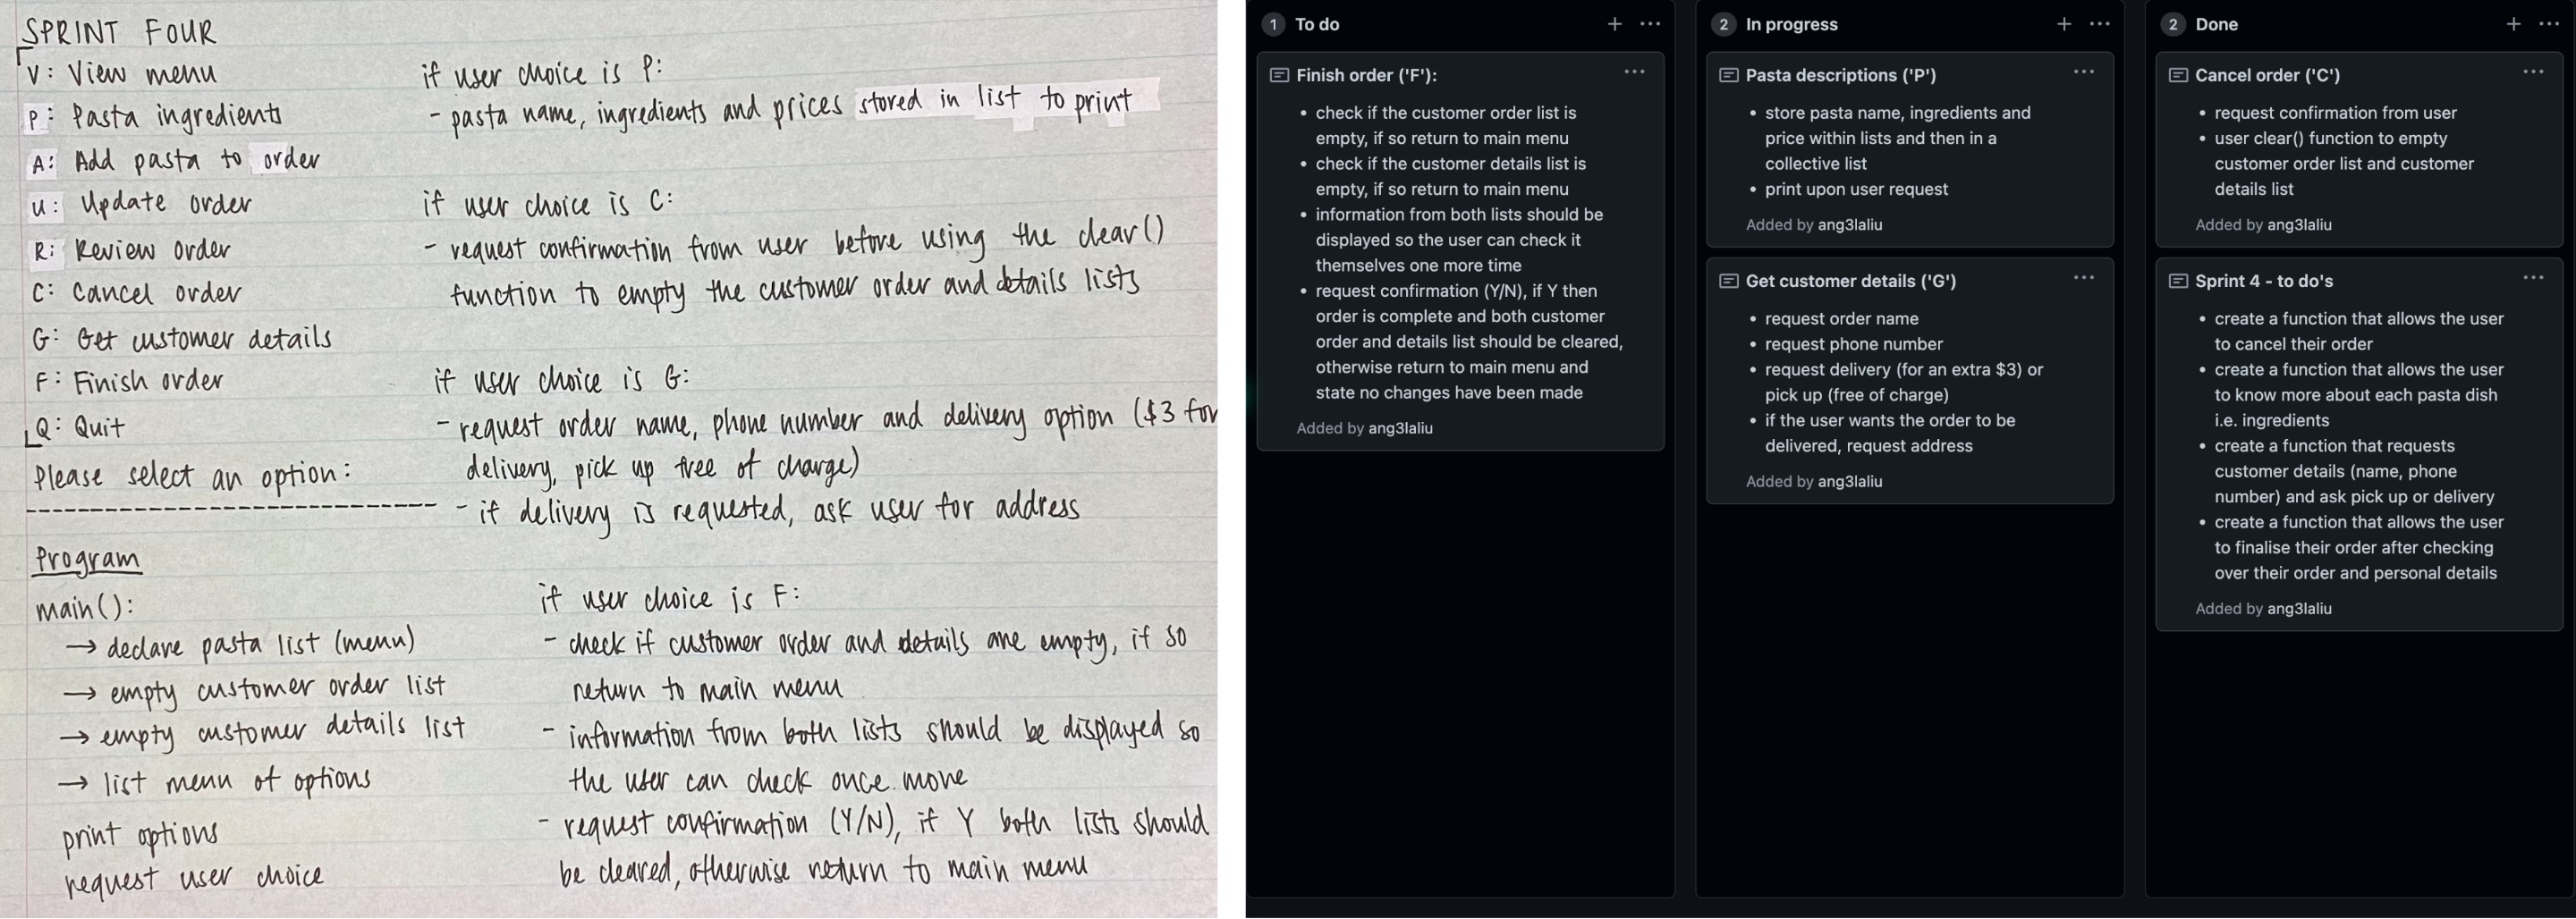 SPRINT FOUR
V: View menu
P: Pasta ingredients
A: Add pasta to order
U: Update order
R: Review order
C: Cancel order
G: Get customer details
F: Finish order
Q: Quit
Please select an option:
if user choice is P:
- pasta name, ingredients and prices stored in list to print
if user choice is C:
- request confirmation from user before using the clear()
function to empty the customer order and details lists
if user choice is G:
- request order name, phone number and delivery option ($3 for
delivery, pick up free of charge)
- if delivery is requested, ask user for address
Program
main():
→ declare pasta list (menu)
→ empty customer order list
→ empty customer details list
→ list menu of options
print options
request user choice
if user choice is F:
- check if customer order and details are empty, if so
return to main menu
- information from both lists should be displayed so
the user can check once more
- request confirmation (Y/N), if Y both lists should
be cleared, otherwise return to main menu
1 To do
Finish order ('F'):
• check if the customer order list is
empty, if so return to main menu
• check if the customer details list is
empty, if so return to main menu
• information from both lists should be
displayed so the user can check it
themselves one more time
• request confirmation (Y/N), if Y then
order is complete and both customer
order and details list should be cleared,
otherwise return to main menu and
state no changes have been made
Added by ang3laliu
2 In progress
Pasta descriptions ('P')
• store pasta name, ingredients and
price within lists and then in a
collective list
• print upon user request
Added by ang3laliu
Get customer details ('G')
• request order name
• request phone number
• request delivery (for an extra $3) or
pick up (free of charge)
• if the user wants the order to be
delivered, request address
Added by ang3laliu
2 Done
Cancel order ('C')
• request confirmation from user
• user clear() function to empty
customer order list and customer
details list
Added by ang3laliu
Sprint 4 - to do's
• create a function that allows the user
to cancel their order
• create a function that allows the user
to know more about each pasta dish
i.e. ingredients
• create a function that requests
customer details (name, phone
number) and ask pick up or delivery
• create a function that allows the user
to finalise their order after checking
over their order and personal details
Added by ang3laliu